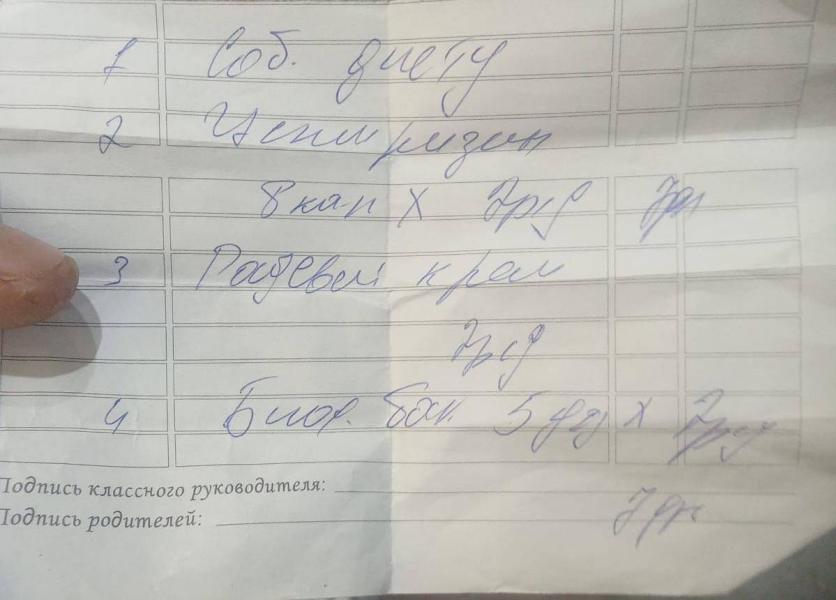 1 Соб. диету
2 Цетиризин
8 кап х 2р/д 7дн
3 Радевит крем
2р/д
4 Биф. бак. 5 доз х 2р/д
Подпись классного руководителя:
7дн
Подпись родителей: